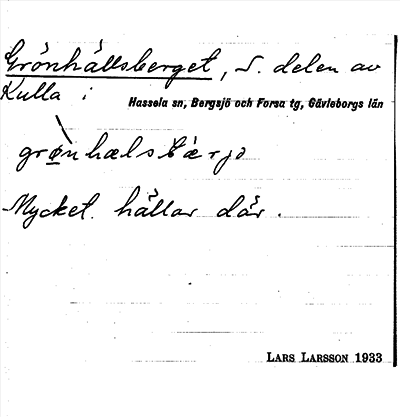 Grönhällsberget, S. delen av
Kulla i
Hassela sn, Bergsjö och Forsa tg, Gävleborgs län
Mycket hällar där.
LARS LARSSON 1933